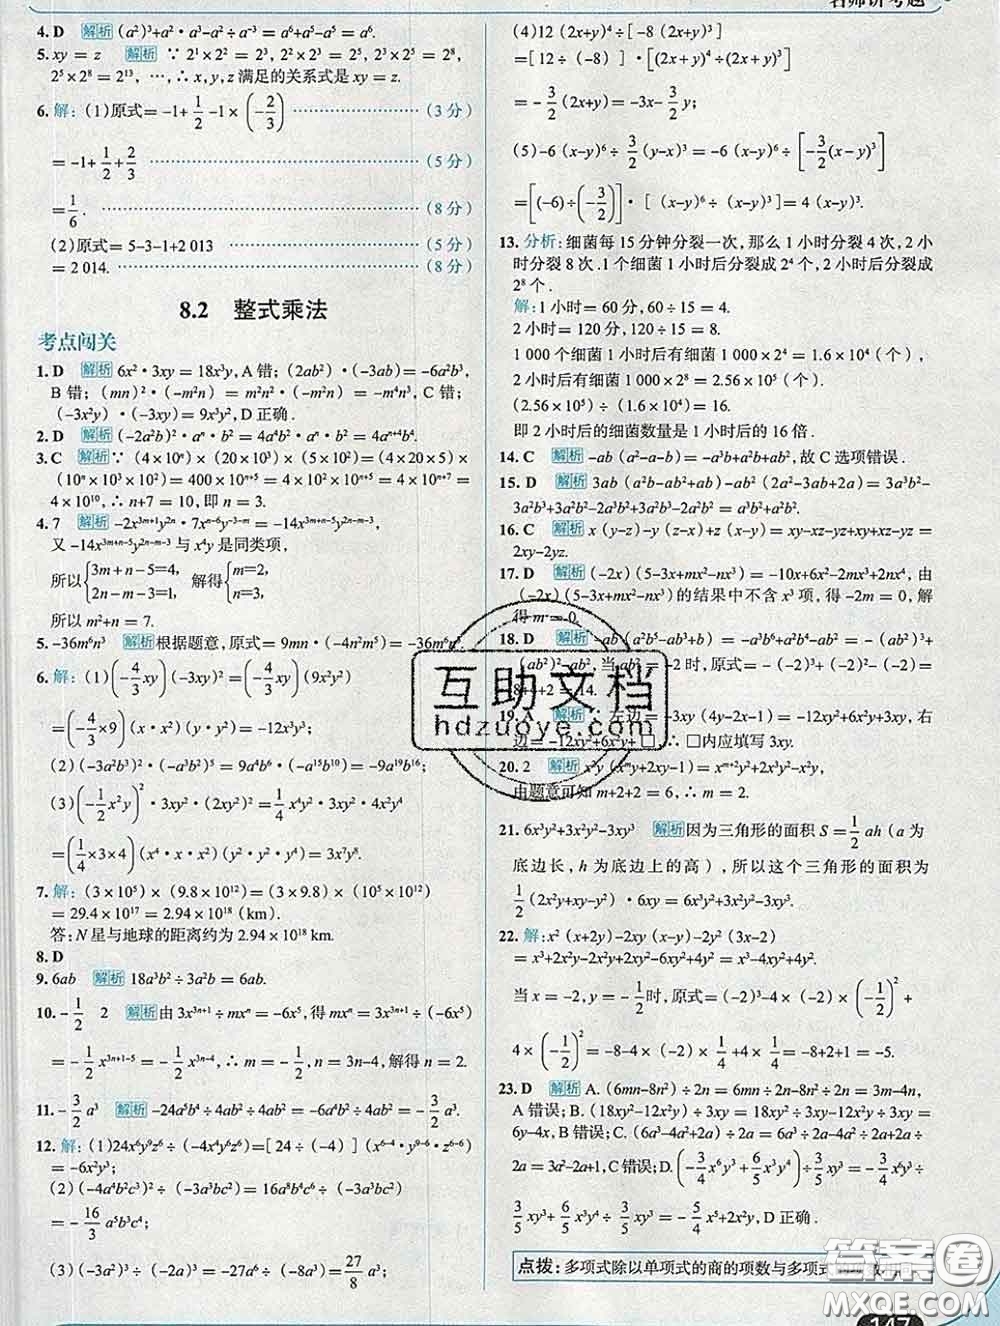 名师讲考题
4. D 解析 (a²)³+a²·a³-a²÷a⁻³ = a⁶+a⁵-a⁵ = a⁶.
5. xy = z 解析 ∵ 2¹×2² = 2³, 2²×2³ = 2⁵, 2³×2⁵ = 2⁸,
2⁵×2⁸ = 2¹³, …, ∴ x, y, z 满足的关系式是 xy = z.
6. 解: (1)原式= -1+1/2-1×(-2/3) (3 分)
= -1+1/2+2/3 (5 分)
= 1/6. (8 分)
(2)原式= 5-3-1+2 013 (5 分)
= 2 014. (8 分)
8.2 整式乘法
考点闯关
1. D 解析 6x²·3xy = 18x³y, A 错; (2ab²)·(-3ab)= -6a²b³,
B 错; (mn)²·(-m²n) = m²n²·(-m²n) = -m⁴n³, C 错;
(-3x²y)·(-3xy)= 9x³y², D 正确.
2. D 解析 (-2a²b)²·aⁿ·b² = 4a⁴b²·aⁿ·b² = 4aⁿ⁺⁴b⁴.
3. C 解析 ∵ (4×10ⁿ)×(20×10³)×(5×10²)=(4×20×5)×
(10ⁿ×10³×10²) = 400×10ⁿ⁺⁵ = 4×10²×10ⁿ⁺⁵ = 4×10ⁿ⁺⁷ =
4×10¹⁰, ∴ n+7 = 10, 即 n = 3.
4. 7 解析 -2x³ᵐ⁺¹y²ⁿ·7xⁿ⁻⁶y⁻³⁻ᵐ = -14x³ᵐ⁺ⁿ⁻⁵y²ⁿ⁻ᵐ⁻³,
又 -14x³ᵐ⁺ⁿ⁻⁵y²ⁿ⁻ᵐ⁻³ 与 x⁴y 是同类项,
所以{3m+n-5=4, 2n-m-3=1, 解得{m=2, n=2.
所以 m²+n = 7.
5. -36m⁶n³ 解析 根据题意, 原式= 9mn·(-4n²m⁵)= -36m⁶n³.
6. 解: (1)(-4/3xy)(-3xy)² = (-4/3xy)(9x²y²)
=(-4/3×9)(x·x²)(y·y²)= -12x³y³;
(2)(-3a³b²)²·(-a⁵b²)³ = 9a⁶b⁴·(-a¹⁵b¹⁰)= -9a¹⁹b¹⁶;
(3)(-1/2x²y)²·3xy²·(2xy²)² = 1/4x⁴y²·3xy²·4x²y⁴ =
(1/4×3×4)(x⁴·x·x²)(y²·y²·y⁴)= 3x⁷y⁸.
7. 解: (3×10⁵)×(9.8×10¹²)=(3×9.8)×(10⁵×10¹²)
= 29.4×10¹⁷ = 2.94×10¹⁸ (km).
答: N 星与地球的距离约为 2.94×10¹⁸ km.
8. D
9. 6ab 解析 18a³b²÷3a²b = 6ab.
10. -1/2 2 解析 由 3x³ⁿ⁺¹÷mxⁿ = -6x⁵, 得 mxⁿ = 3x³ⁿ⁺¹÷(-6x⁵)
= -1/2x³ⁿ⁺¹⁻⁵ = -1/2x³ⁿ⁻⁴, ∴ m = -1/2, n = 3n-4, 解得 n = 2.
11. -3/2a³ 解析 -24a⁵b⁴÷4ab²÷4ab² = -6a⁴b²÷4ab² = -3/2a³.
12. 解: (1)24x⁶y⁹z⁶÷(-4x⁴y⁶z⁶)=[24÷(-4)](x⁶⁻⁴·y⁹⁻⁶·z⁶⁻⁶)
= -6x²y³;
(2)(-4a⁴b²c³)²÷(-3a³bc²)= 16a⁸b⁴c⁶÷(-3a³bc²)
= -16/3a⁵b³c⁴;
(3)(-3a²)³÷(-2a)³ = -27a⁶÷(-8a³)= 27/8a³;
(4)12(2x+y)⁴÷[-8(2x+y)³]
=[12÷(-8)]·[(2x+y)⁴÷(2x+y)³]
= -3/2(2x+y)= -3x-3/2y;
(5)-6(x-y)⁶÷3/2(y-x)³ = -6(x-y)⁶÷[-3/2(x-y)³]
=[(-6)÷(-3/2)]·[(x-y)⁶÷(x-y)³]= 4(x-y)³.
13. 分析: 细菌每 15 分钟分裂一次, 那么 1 小时分裂 4 次, 2 小时分裂 8 次. 1 个细菌 1 小时后分裂成 2⁴ 个, 2 小时后分裂成
2⁸ 个.
解: 1 小时= 60 分, 60÷15 = 4.
2 小时= 120 分, 120÷15 = 8.
1 000 个细菌 1 小时后有细菌 1 000×2⁴ = 1.6×10⁴(个),
1 000 个细菌 2 小时后有细菌 1 000×2⁸ = 2.56×10⁵(个).
(2.56×10⁵)÷(1.6×10⁴)= 16.
即 2 小时后的细菌数量是 1 小时后的 16 倍.
14. C 解析 -ab(a²-a-b)= -a³b+a²b+ab², 故 C 选项错误.
15. D 解析 3ab(a²b-ab²+ab)-ab²(2a²-3ab+2a)= 3a³b²-
3a²b³+3a²b²-2a³b²+3a²b³-2a²b² = a³b²+a²b².
16. C 解析 x(y-z)-y(z-x)+z(x-y)= xy-xz-yz+xy+xz-yz =
2xy-2yz.
17. D 解析 (-2x)(5-3x+mx²-nx³)= -10x+6x²-2mx³+2nx⁴, 由
(-2x)(5-3x+mx²-nx³)的结果中不含 x³ 项, 得 -2m = 0, 解
得 m = 0.
18. D 解析 -ab(a²b⁵-ab³+b)= -a³b⁶+a²b⁴-ab² = -(ab²)³+
(ab²)²-ab², 当 ab² = -2 时, 原式= -(-2)³+(-2)²-(-2)=
8+4+2 = 14.
19. A 解析 ∵ 左边= -3xy(4y-2x-1)= -12xy²+6x²y+3xy, 右
边= -12xy²+6x²y+□, ∴ □内应填写 3xy.
20. 2 解析 x²y(xᵐy+2xy-1)= xᵐ⁺²y²+2x³y²-x²y,
由题意可知 m+2+2 = 6, ∴ m = 2.
21. 6x³y²+3x²y²-3xy³ 解析 因为三角形的面积 S = 1/2ah(a 为
底边长, h 为底边上的高), 所以这个三角形的面积为
1/2(2x²y+xy-y²)·6xy = 6x³y²+3x²y²-3xy³.
22. 解: x²(x+2y)-2xy(x-y)-2y²(3x-2)
= x³+2x²y-2x²y+2xy²-6xy²+4y² = x³-4xy²+4y².
当 x = -2, y = -1/2 时, 原式=(-2)³-4×(-2)×(-1/2)²+
4×(-1/2)² = -8-4×(-2)×1/4+4×1/4 = -8+2+1 = -5.
23. D 解析 A.(6mn-8n²)÷2n = 6mn÷2n-8n²÷2n = 3m-4n,
A 错误; B.(18xy²-12x²y)÷3xy = 18xy²÷3xy-12x²y÷3xy =
6y-4x, B 错误; C.(6a³-4a²+2a)÷2a = 6a³÷2a-4a²÷2a+2a÷
2a = 3a²-2a+1, C 错误; D.(-3/4x⁶y³+6/5x³y⁴-9/10xy³)÷3/5xy³ = -3/4x⁶y³÷
3/5xy³+6/5x³y⁴÷3/5xy³-9/10xy³÷3/5xy³ = -5/4x⁵+2x²y-3/2, D 正确.
点拨: 多项式除以单项式的商的项数与多项式
147
互助文档
hdzuoye.com
答案圈
MXQE.COM